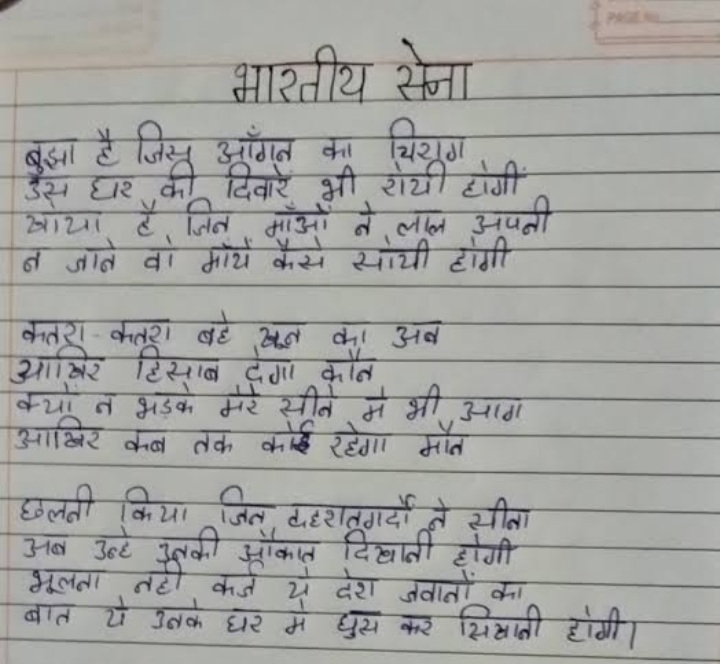 PAGE No.
भारतीय सेना
बुझा है जिस आँगन का चिराग
उस घर की दिवारें भी रोयी होगीं
खोया है जिन माँओं ने लाल अपनी
न जाने वो माँयें कैसे सोयी होगी
कतरा-कतरा बहे खून का अब
आखिर हिसाब देगा कौन
क्यों न भड़के मेरे सीने मे भी आग
आखिर कब तक कोई रहेगा मौन
छलनी किया जिन दहशतगर्दों ने सीना
अब उन्हे उनकी औकात दिखानी होगी
भूलता नही कर्ज ये देश जवानों का
बात ये उनके घर मे घुस कर सिखानी होगी।